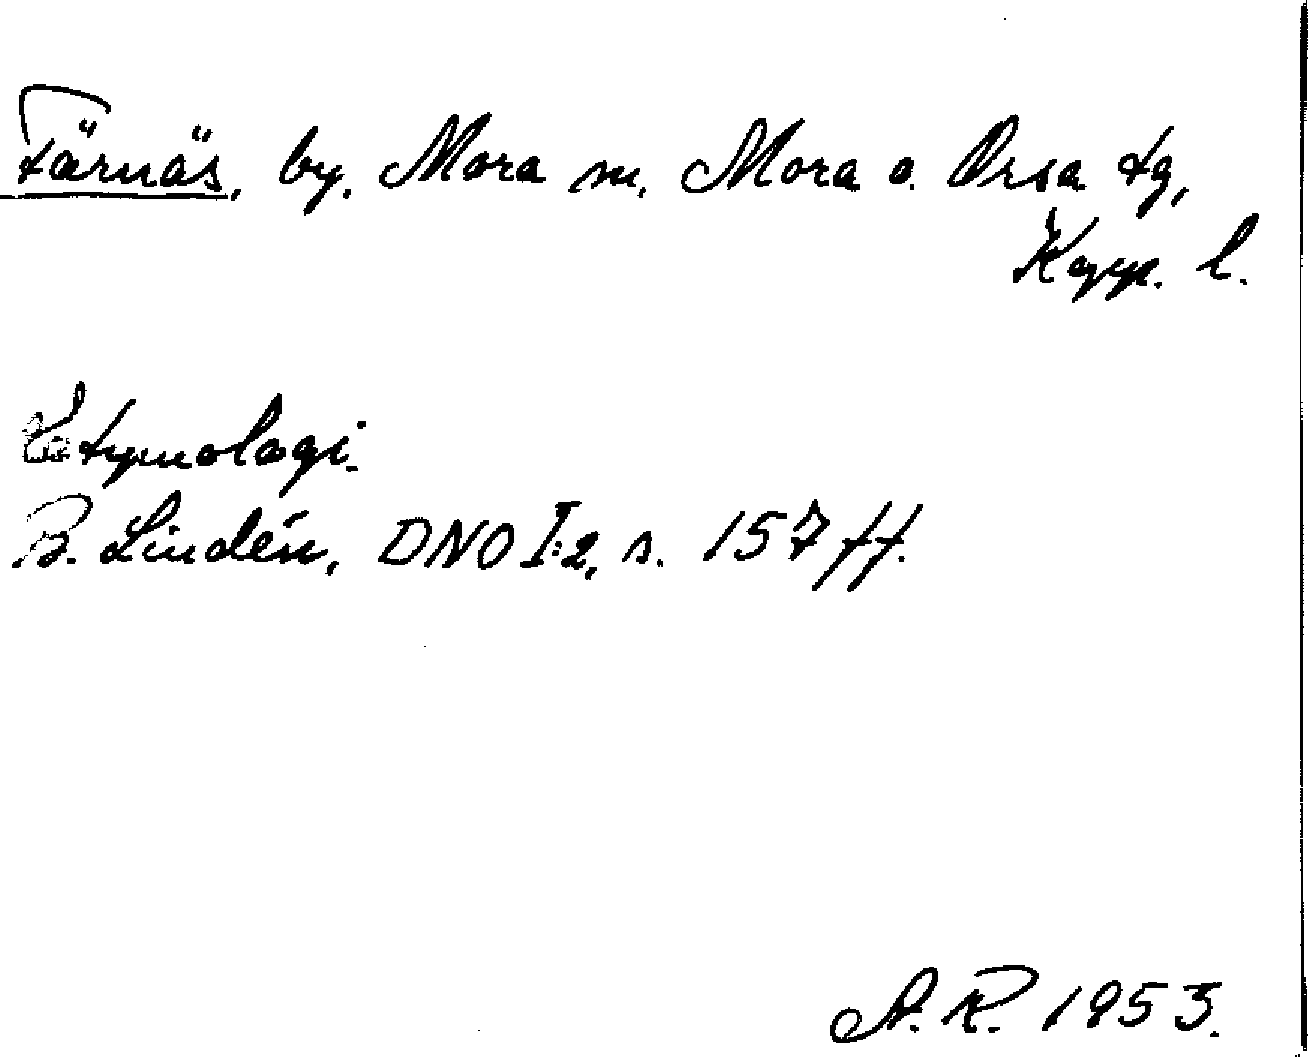 Färnäs, by. Mora sn, Mora o. Orsa tg,
Kopp. l.
Etymologi.
B. Lindén, DNO I:2, s. 157 ff.
A.R. 1953.